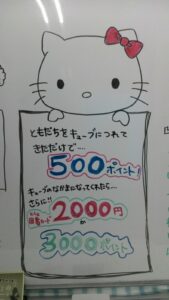 ともだちをキューブにつれて
きただけで…
500ポイント!
キューブのなかまになってくれたら…
さらに!!
図書カード2000円
か
3000ポイント